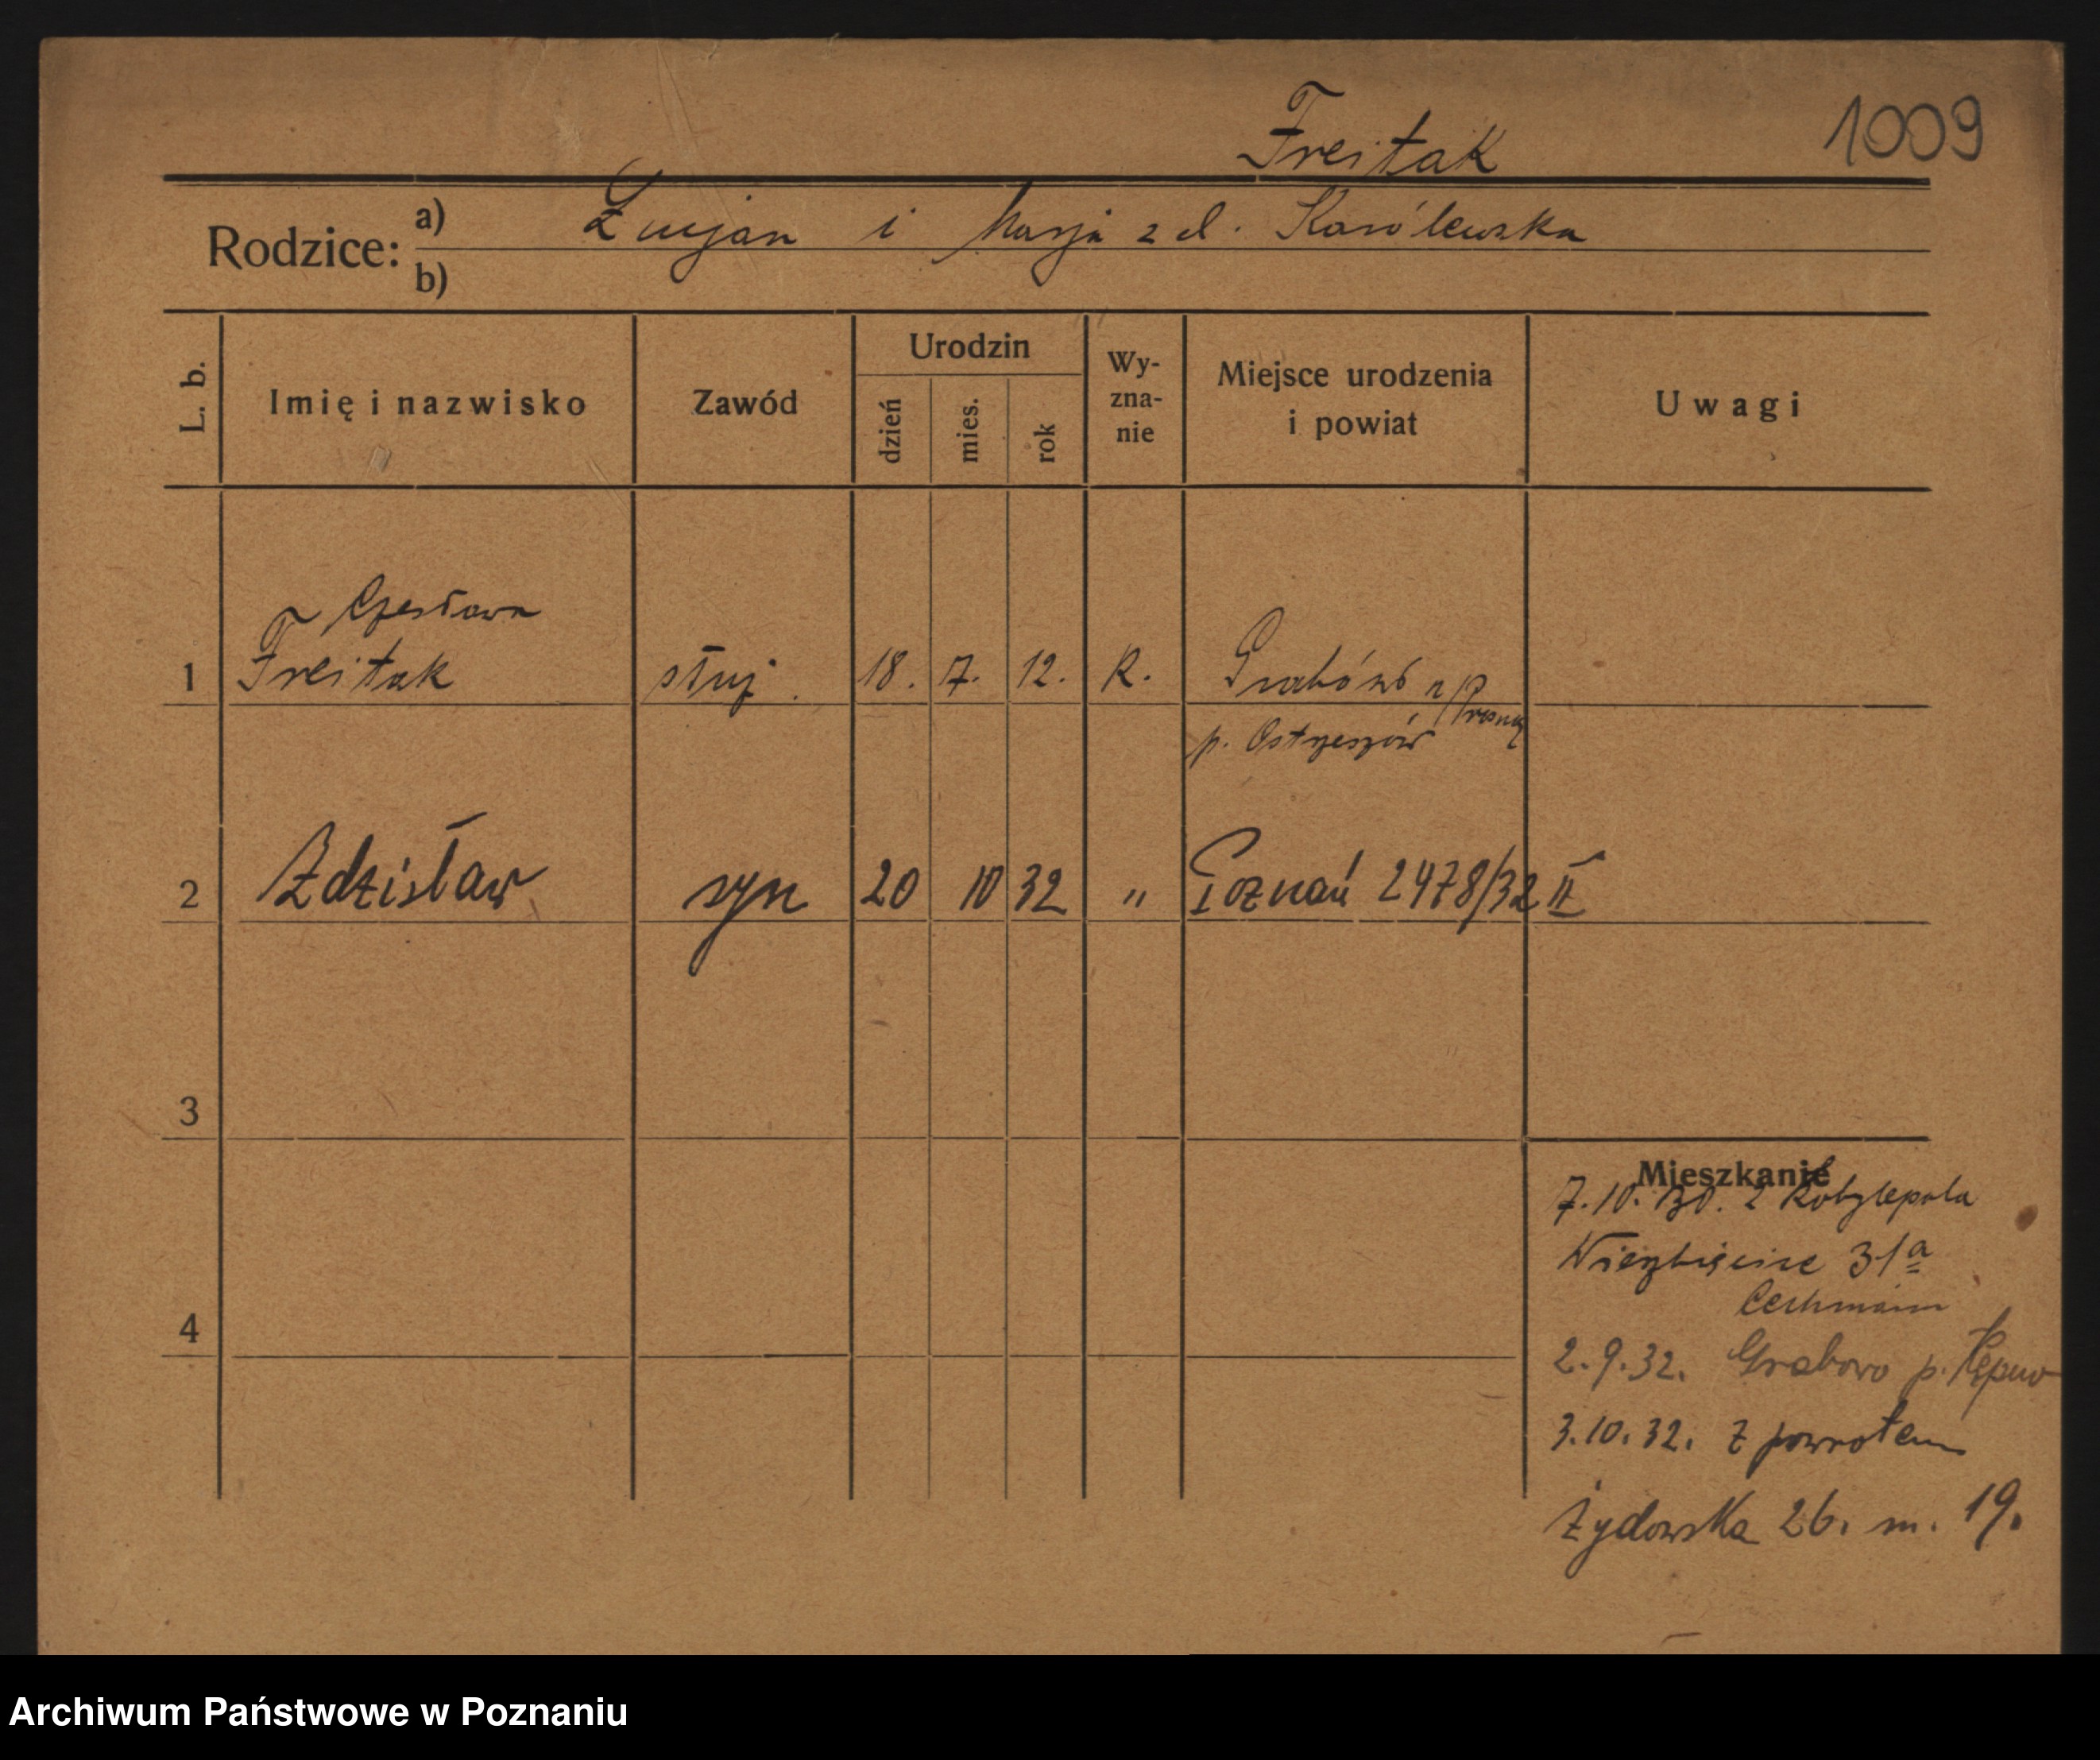 Freitak 1009
Rodzice: a) Lucjan i Marja z d. Karólewska
b)
L. b. Imię i nazwisko Zawód Urodzin dzień mies. rok Wy-zna-nie Miejsce urodzenia i powiat Uwagi
Czesława
1 Freitak służ. 18. 7. 12. R. Grabów n/Prosną
p. Ostrzeszów
2 Zdzisław syn 20 10 32 " Poznań 2478/32 II
3
Mieszkanie
7.10.30. z Kobylepola
Wierzbięcice 31a
4
2.9.32. Grabowo p. Kępno
3.10.32. z powrotem
Żydowska 26. m. 19.
Archiwum Państwowe w Poznaniu